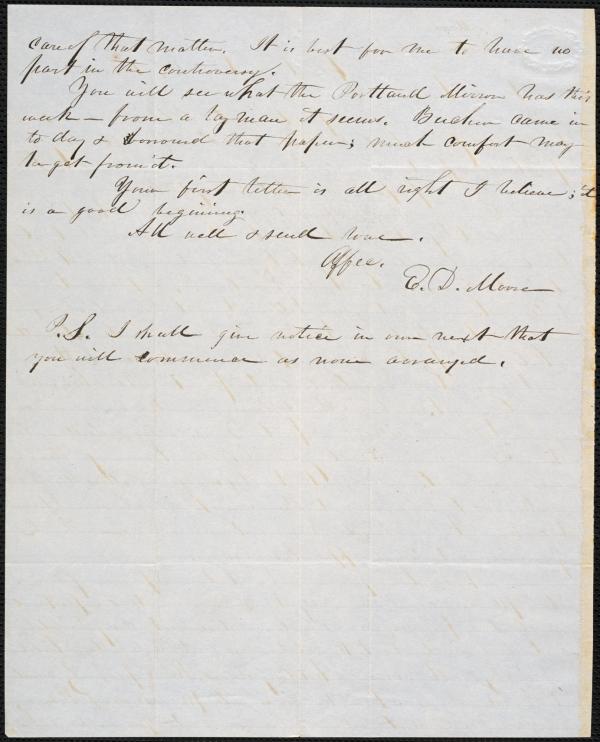 care of that matter. It is best for me to have no
part in the controversy.
You will see what the Portland Mirror has this
week – from a layman it seems. Beecher came in
to day & borrowed that paper; much comfort may
he get from it.
Your first letter is all right I believe; it
is a good begining.
All well & send love.
Affec.
E. D. Moore
P.S. I shall give notice in our next that
you will commence as now arranged.